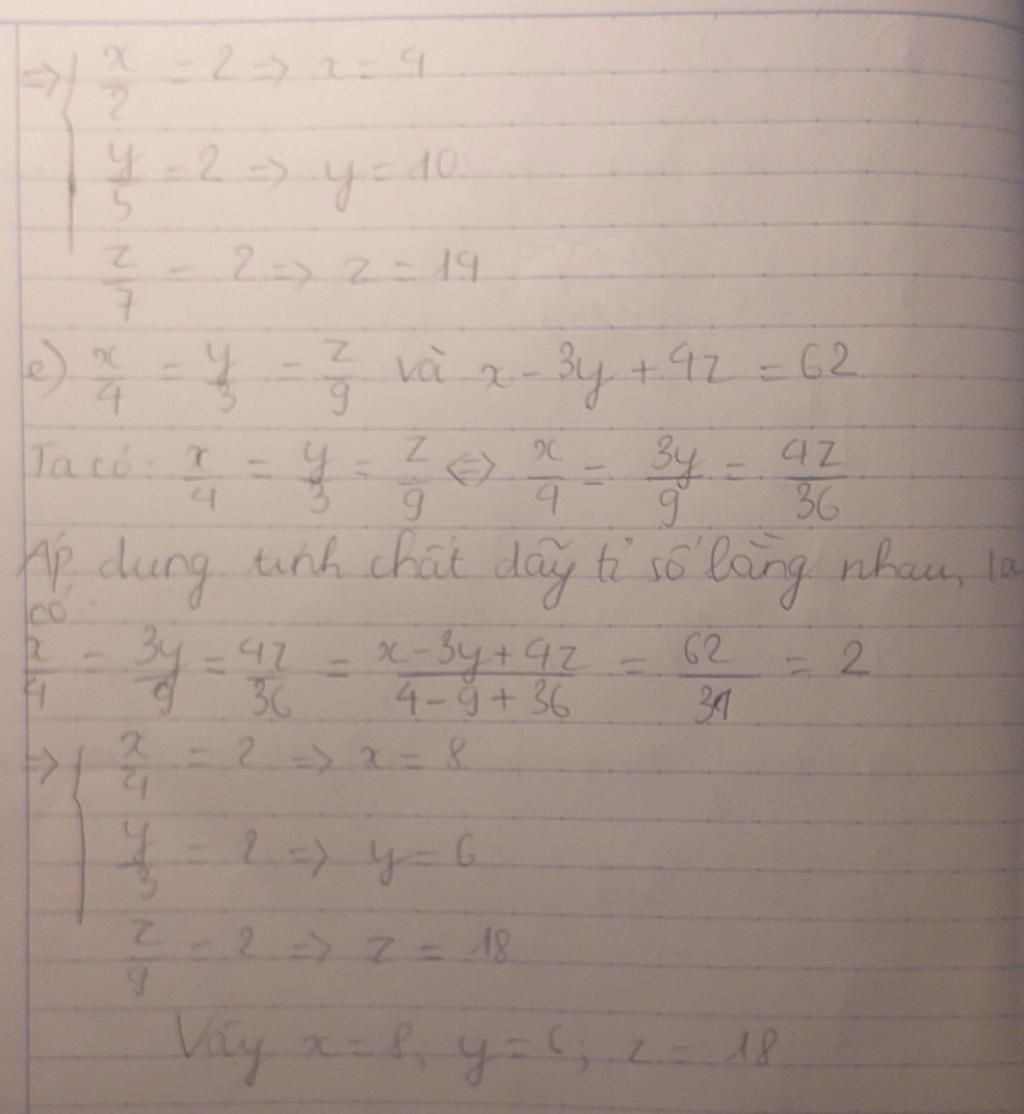 ⇒ { x/2 = 2 ⇒ x = 4
y/5 = 2 ⇒ y = 10
z/7 = 2 ⇒ z = 14
e) x/4 = y/3 = z/9 và x - 3y + 4z = 62
Ta có: x/4 = y/3 = z/9 ⇔ x/4 = 3y/9 = 4z/36
Áp dung tính chất dãy tỉ số bằng nhau, ta
có:
x/4 = 3y/9 = 4z/36 = (x - 3y + 4z)/(4 - 9 + 36) = 62/31 = 2
⇒ { x/4 = 2 ⇒ x = 8
y/3 = 2 ⇒ y = 6
z/9 = 2 ⇒ z = 18
Vậy x = 8, y = 6; z = 18